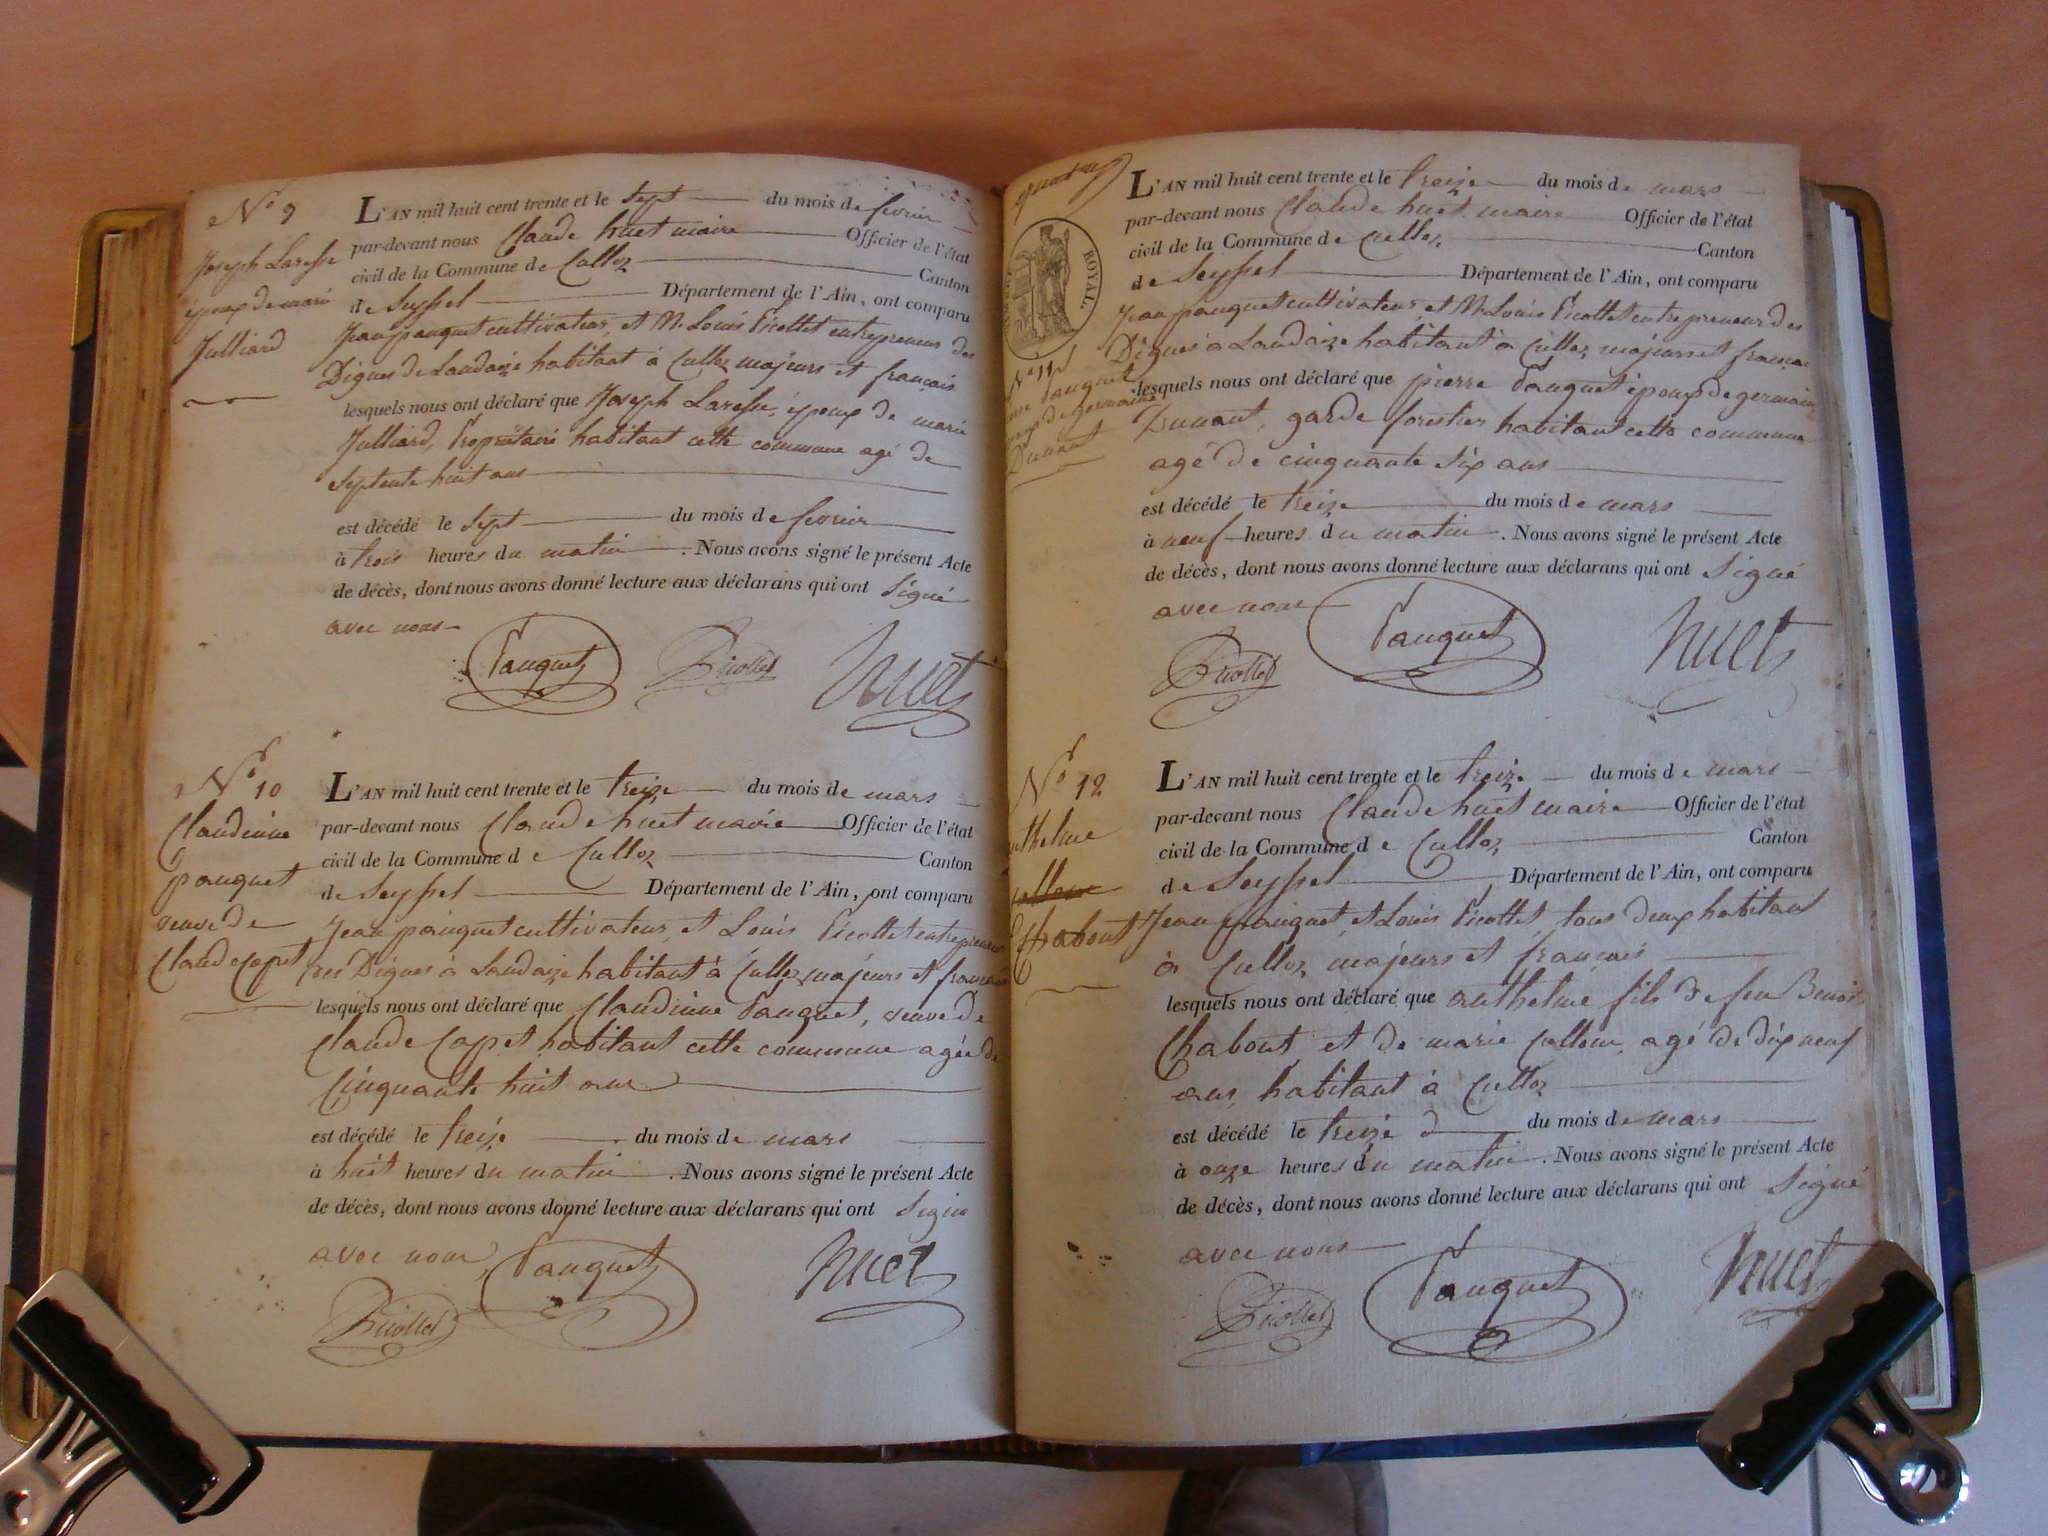 No 9
Joseph Laresse
époux de marie
Julliard
L'AN mil huit cent trente et le sept du mois de fevrier
par-devant nous Claude huet maire Officier de l'état
civil de la Commune de Culloz Canton
de Seyssel Département de l'Ain, ont comparu
Jean pauquet cultivateur, et M. Louis Picollet entrepreneur des
Digues de Laudaize habitant à Culloz majeurs et français
lesquels nous ont déclaré que Joseph Laresse, époux de marie
Julliard, Propriétaire habitant cette commune agé de
septente huit ans
est décédé le sept du mois de fevrier
à trois heures du matin . Nous avons signé le présent Acte
de décès, dont nous avons donné lecture aux déclarans qui ont signé
avec nous
Pauquet Picollet huet
No 10
Claudinne
pauquet
veuve de
Claude Capet
L'AN mil huit cent trente et le treize du mois de mars
par-devant nous Claude huet maire Officier de l'état
civil de la Commune de Culloz Canton
de Seyssel Département de l'Ain, ont comparu
Jean pauquet cultivateur, et Louis Picollet entrepreneur
des Digues à Laudaize habitant à Culloz majeurs et français
lesquels nous ont déclaré que Claudinne Pauquet, veuve de
Claude Capet habitant cette commune agée de
Cinquante huit ans
est décédé le treize du mois de mars
à huit heures du matin . Nous avons signé le présent Acte
de décès, dont nous avons donné lecture aux déclarans qui ont signé
avec nous Pauquet huet
Picollet
ROYAL.
No 11
Pauquet
époux de germaine
Dunant
L'AN mil huit cent trente et le treize du mois de mars
par-devant nous Claude huet maire Officier de l'état
civil de la Commune de Culloz Canton
de Seyssel Département de l'Ain, ont comparu
Jean pauquet cultivateur, et M. Louis Picollet entrepreneur des
Digues à Laudaize habitant à Culloz majeurs et français
lesquels nous ont déclaré que pierre Pauquet époux de germaine
Dunant, garde forestier habitant cette commune
agé de cinquante six ans
est décédé le treize du mois de mars
à neuf heures du matin . Nous avons signé le présent Acte
de décès, dont nous avons donné lecture aux déclarans qui ont signé
avec nous Pauquet huet
Picollet
No 12
anthelme
Chabout
L'AN mil huit cent trente et le treize du mois de mars
par-devant nous Claude huet maire Officier de l'état
civil de la Commune de Culloz Canton
de Seyssel Département de l'Ain, ont comparu
Jean pauquet, et Louis Picollet, tous deux habitant
à Culloz majeurs et français
lesquels nous ont déclaré que anthelme fils de feu Benoit
Chabout et de marie Cullour, agé de dix neuf
ans, habitant à Culloz
est décédé le treize du mois de mars
à onze heures du matin . Nous avons signé le présent Acte
de décès, dont nous avons donné lecture aux déclarans qui ont signé
avec nous
Picollet Pauquet huet